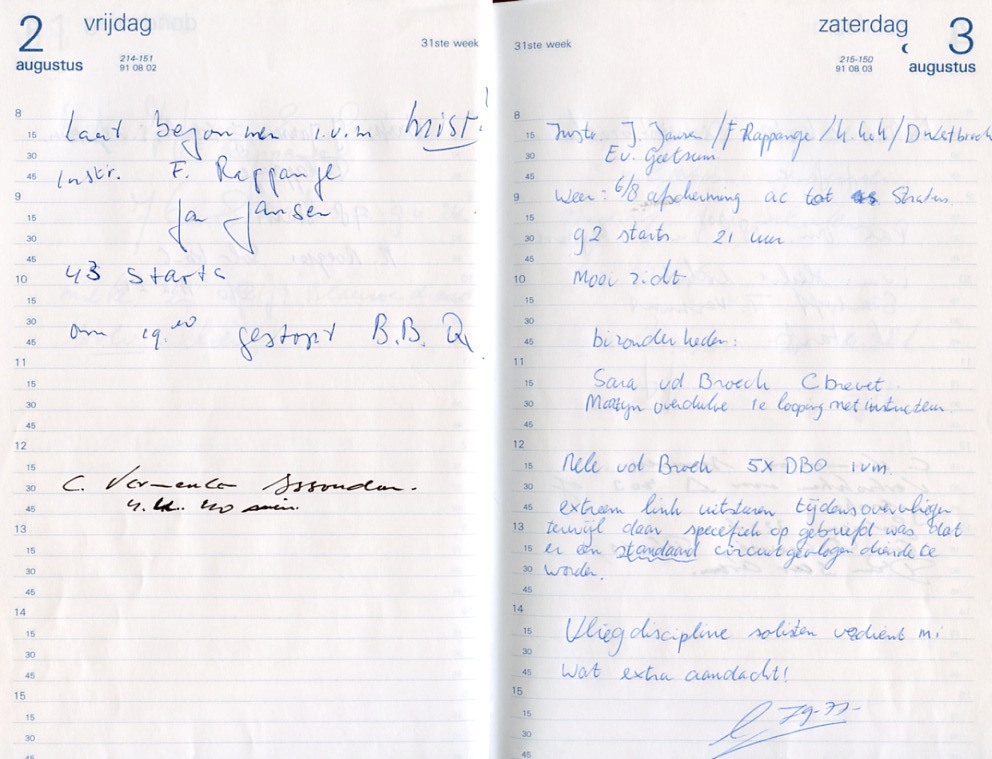 2 vrijdag
augustus
214-151
91 08 02
31ste week
8
Laat begonnen i.v.m mist!
15
30
Instr. F. Rappange
45
9
Jan Jansen
15
30
45
43 starts
10
15
30
om 19.00 gestopt B.B.Q.
45
11
15
30
45
12
15
30
C. Vermeulen
45
4. u. 40 min.
13
15
30
45
14
15
30
45
15
15
30
45
31ste week
zaterdag 3
augustus
215-150
91 08 03
8
15
Instr. J. Jansen / F Rappange /
30
E v. Geetsum
45
9
Weer: 6/8 afscherming ac tot Stratus
15
30
92 starts 21 uur
45
10
Mooi zicht
15
30
45
bizonderheden:
11
15
Sara vd Broech C brevet.
30
Martijn overdulve 1e looping met instructeur.
45
12
15
Nele vd Broech 5x DBO ivm.
30
45
extreem link uitsturen tijdens overvliegen
13
terwijl daar specefiek op gebriefd was dat
15
er een standaard circuit gevlogen diende te
30
worden.
45
14
15
Vliegdiscipline solisten verdient mi
30
45
wat extra aandacht!
15
15
30
45